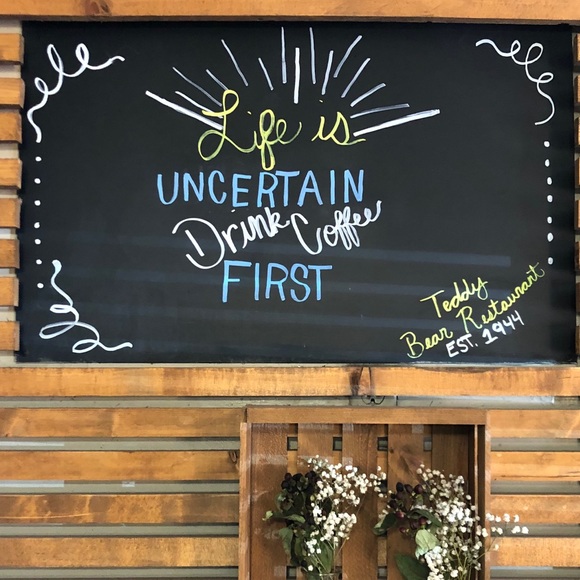 Life is
UNCERTAIN
Drink Coffee
FIRST
Teddy
Bear Restaurant
EST. 1944